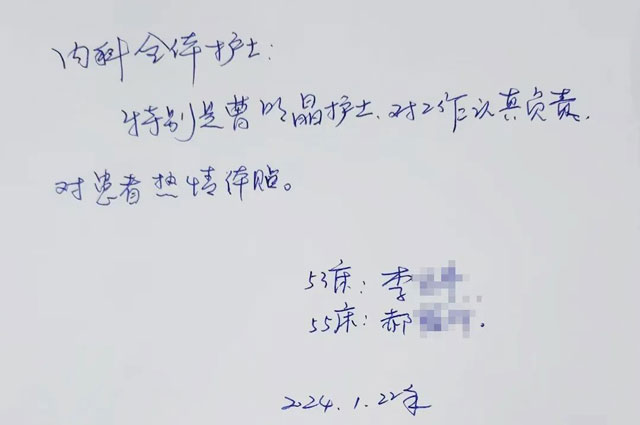 内科全体护士:
特别是曹明晶护士、对工作认真负责、
对患者热情体贴。
53床: 李
55床: 郝
2024.1.22年